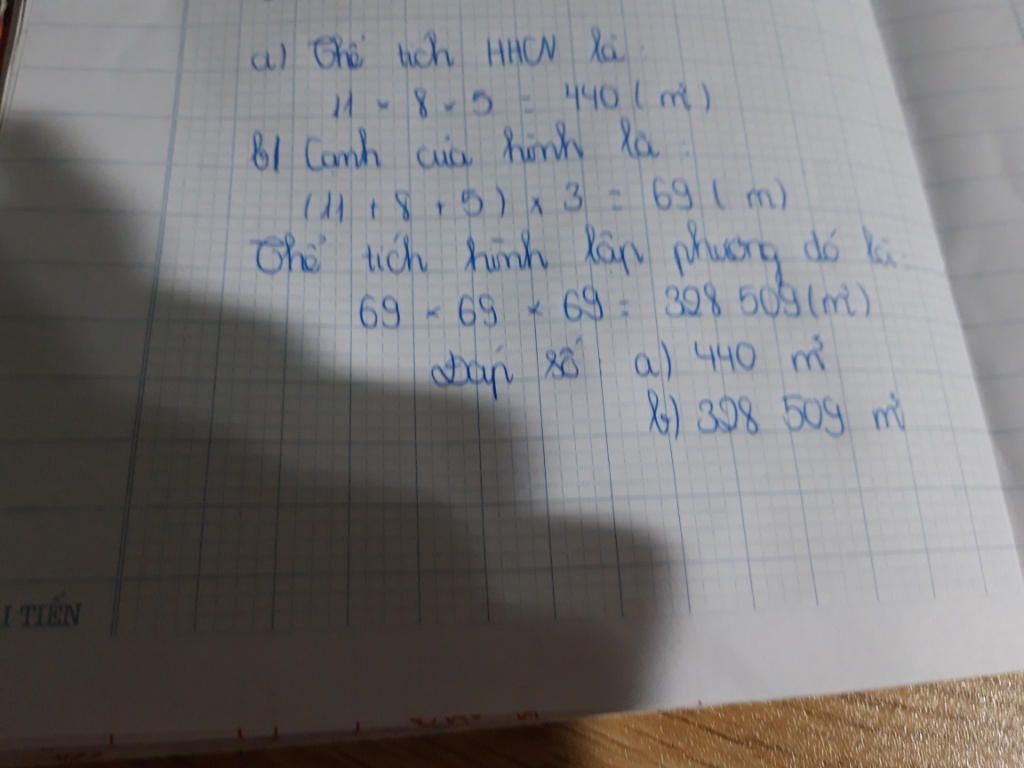 a) Thể tích HHCN là:
11 × 8 × 5 = 440 (m³)
b) Cạnh của hình là:
(11 + 8 + 5) × 3 = 69 (m)
Thể tích hình lập phương đó là:
69 × 69 × 69 = 328 509 (m³)
Đáp số: a) 440 m³
b) 328 509 m³
I TIẾN